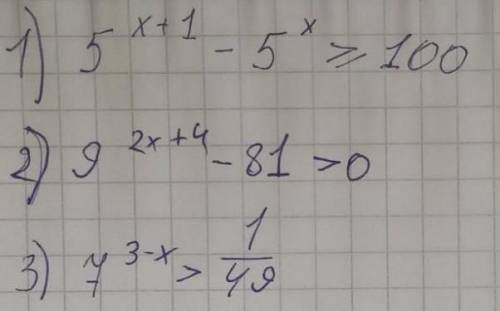 1) 5^{x+1} - 5^x ⩾ 100
2) 9^{2x+4} - 81 > 0
3) 7^{3-x} > \frac{1}{49}